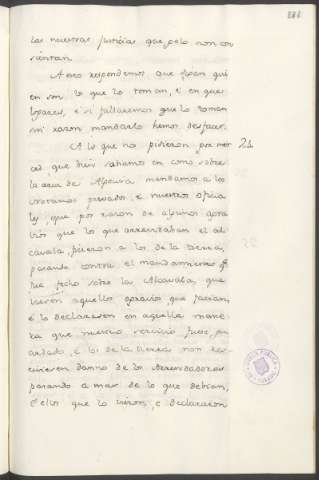 las nuestras justiçias que gelo non con
sientan.
A esto respondemos que digan qui
en son los que lo toman, e en que
logares, e si fallaremos que lo toman
sin raçon mandarlo hemos desfacer.
A lo que nos pidieron por mer 21
ced que bien sabiamos en como sobre
la de mandamos a los
nuestros privados, e nuestros oficia
les que por raçon de algunos agra
vios que los que arrendaban el al
cavala, ficieron a los de la tierra,
pasando contra el mandamiento que
fue fecho sobre la Alcavala, que
viesen aquellos agravios, que facian,
e lo declarasen en aquella mane
ra que nuestro servicio fuese gu
ardado, e los de la tierra non re
civiesen danno de los Arrendadores
pasando a mas de lo que debian,
e ellos que lo vieron, e declararon